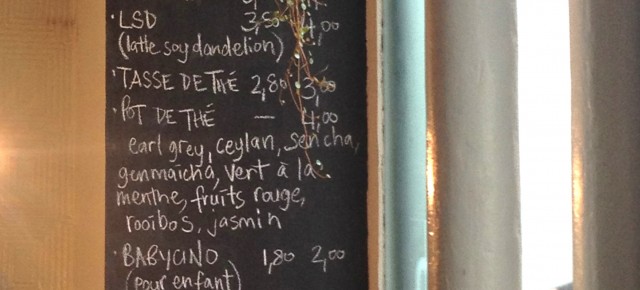 · LSD 3,50 4,00
(latte soy dandelion)
· TASSE DE THÉ 2,80 3,00
· POT DE THÉ — 4,00
earl grey, ceylan, sencha,
genmaicha, vert à la
menthe, fruits rouge,
rooibos, jasmin
· BABYCINO 1,80 2,00
(pour enfant)